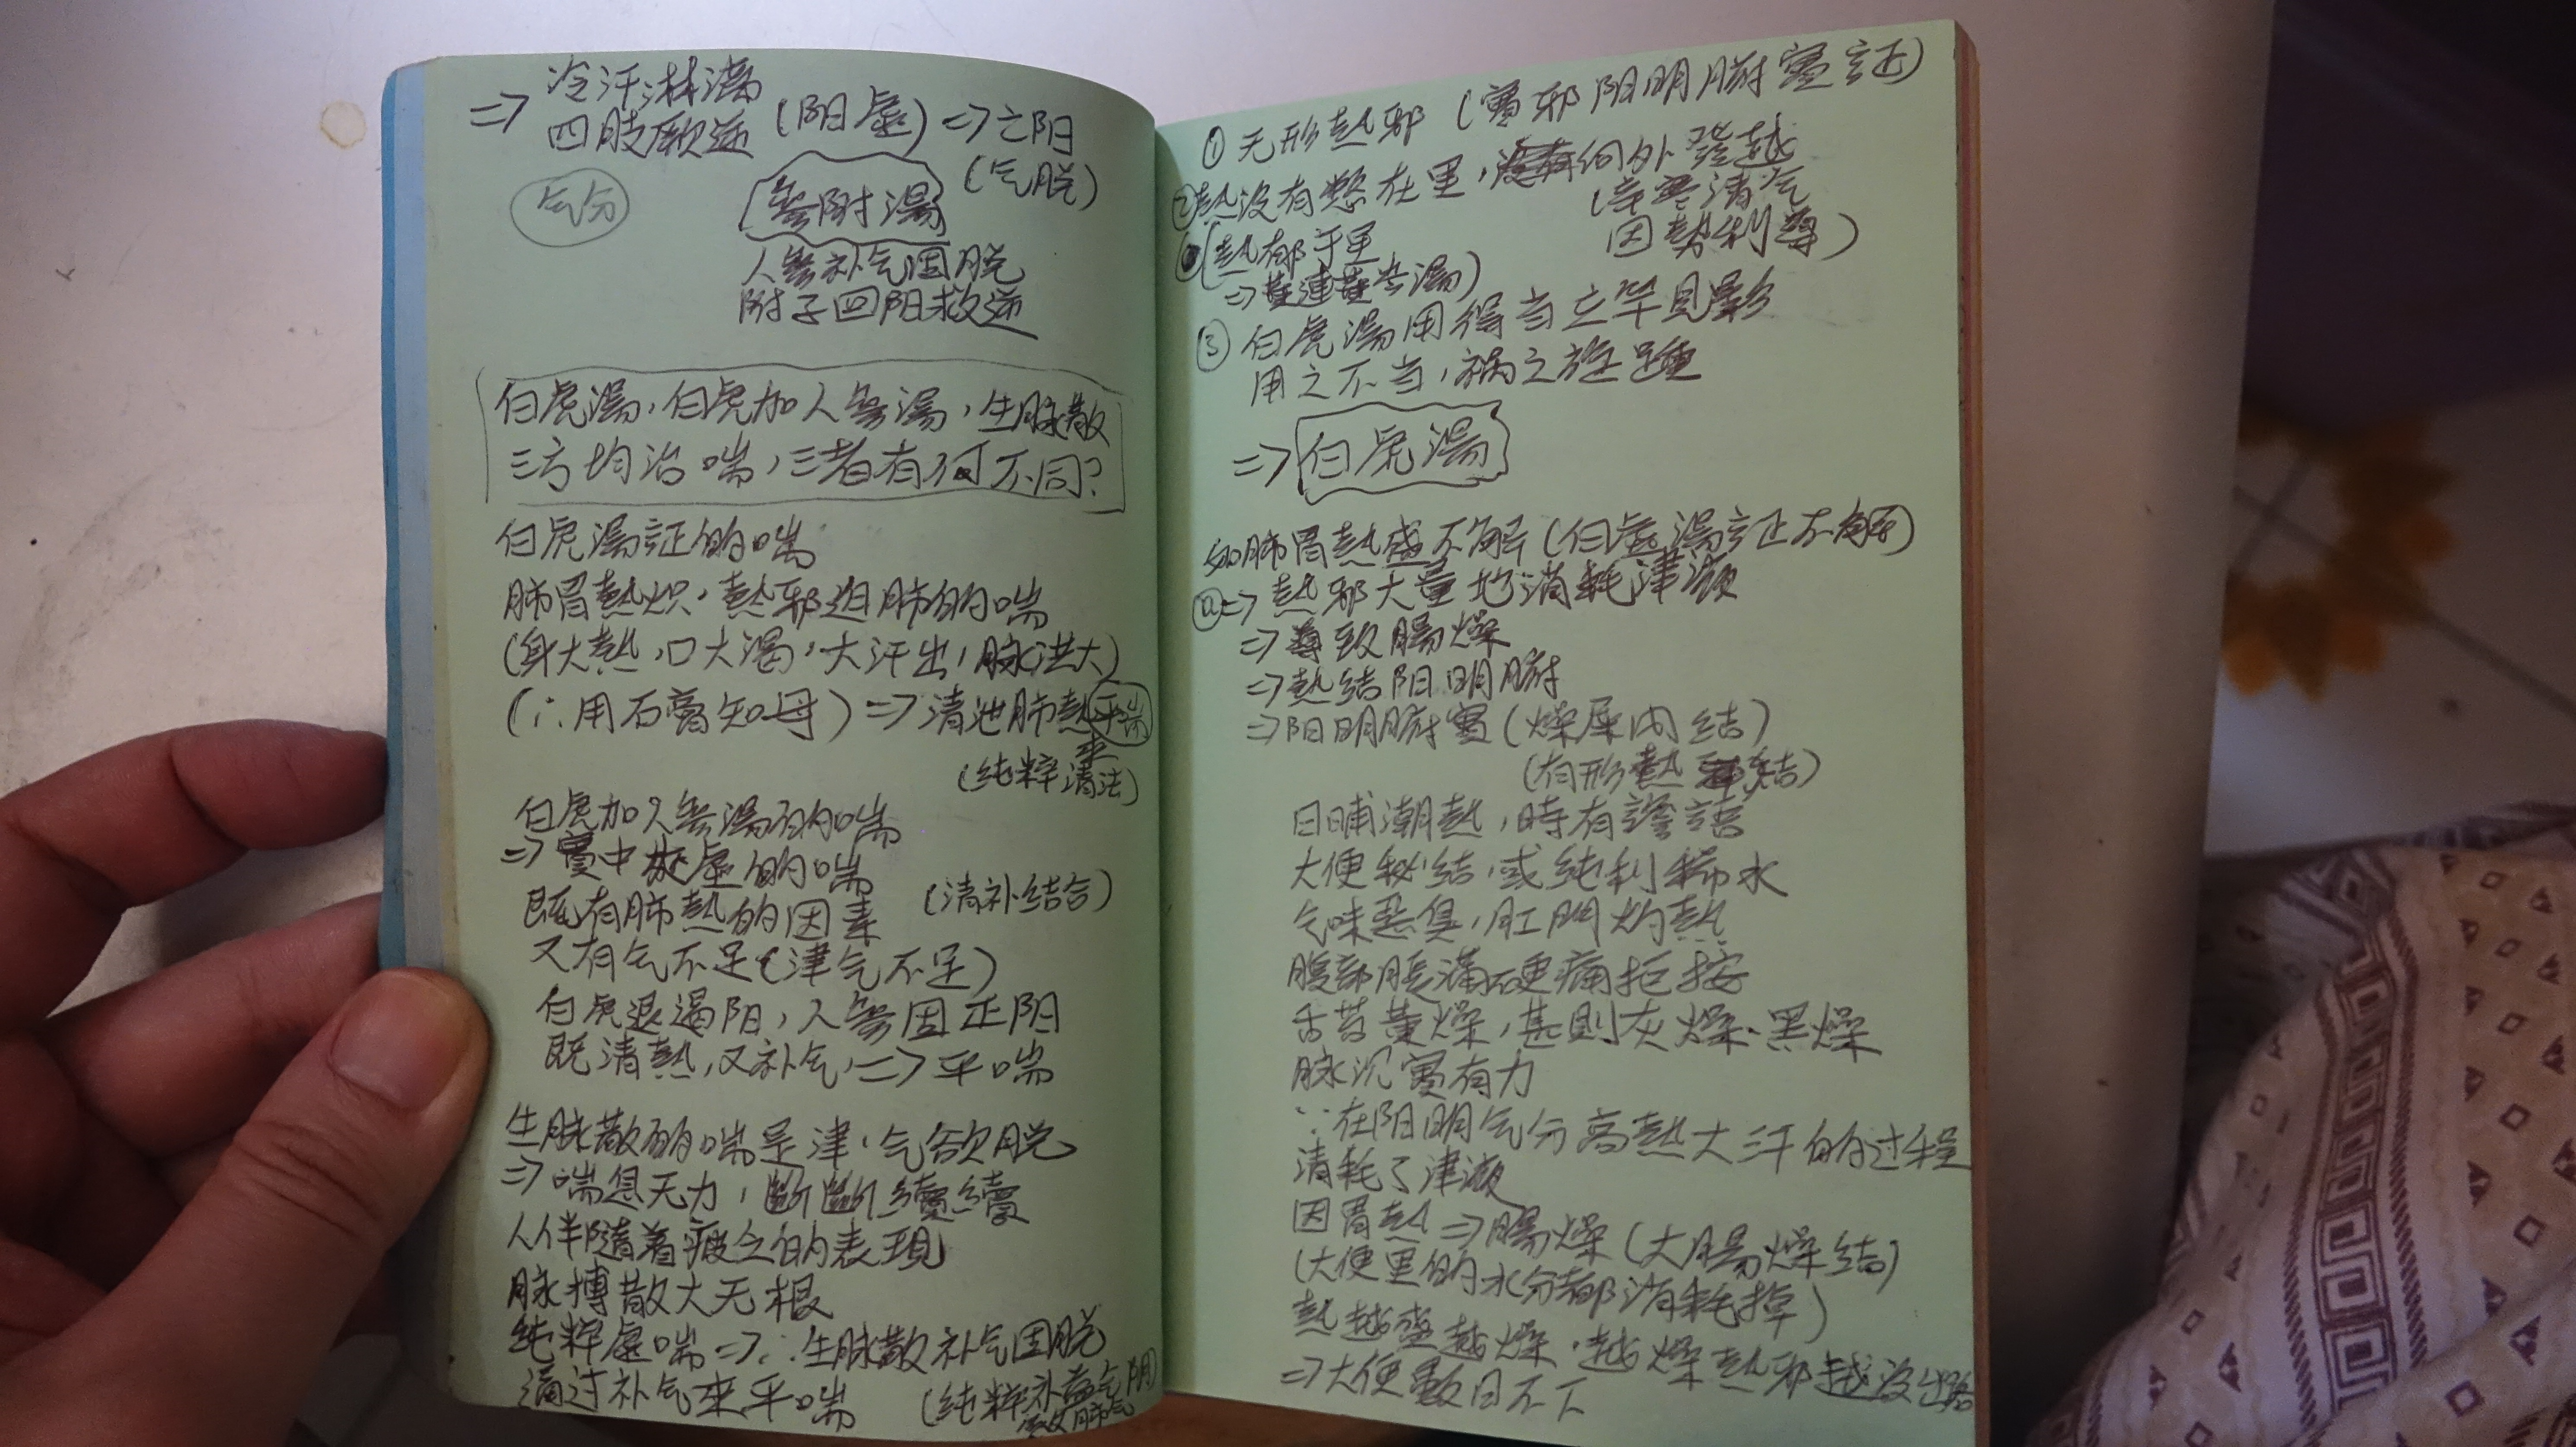 ⇒ 冷汗淋漓
四肢厥逆 (阳虚) ⇒ 亡阳
(气脱)
气分
参附湯
人参补气固脱
附子回阳救逆
白虎湯,白虎加人参湯,生脉散
三方均治喘,三者有何不同?
白虎湯証的喘
肺胃熱炽,熱邪迫肺的喘
(身大熱,口大渴,大汗出,脉洪大)
(∴用石膏知母) ⇒ 清泄肺熱平喘
来
(纯粹清法)
白虎加人参湯的喘
⇒ 實中挾虚的喘
既有肺熱的因素 (清补结合)
又有气不足(津气不足)
白虎退遏阳,人参固正阳
既清熱,又补气 ⇒ 平喘
生脉散的喘是津、气欲脱
⇒ 喘息无力,斷斷續續
人伴隨着疲乏的表現
脉搏散大无根
纯粹虚喘 ⇒ ∴生脉散补气固脱
通过补气来平喘 (纯粹补益气阴
敛肺气
① 无形熱邪 (實邪阳明腑實証)
②熱没有憋在里,向外發越
(辛寒清气
因勢利導)
(熱郁于里
⇒ 黄連黄芩湯)
③ 白虎湯用得当立竿見影
用之不当,禍之旋踵
⇒ 白虎湯
如肺胃熱盛不解(白虎湯証不解)
⇒ 熱邪大量地消耗津液
⇒ 導致腸燥
⇒ 熱结阳明腑
⇒ 阳明腑實(燥屎内结)
(有形熱结)
日晡潮熱,時有譫語
大便秘结,或纯利稀水
气味恶臭,肛門灼熱
腹部脹满硬痛拒按
舌苔黄燥,甚則灰燥、黑燥
脉沉實有力
∵在阳明气分高熱大汗的过程
消耗了津液
因胃熱 ⇒ 腸燥(大腸燥结)
(大便里的水分都消耗掉)
熱越盛越燥,越燥熱邪越没出路
⇒ 大便數日不下